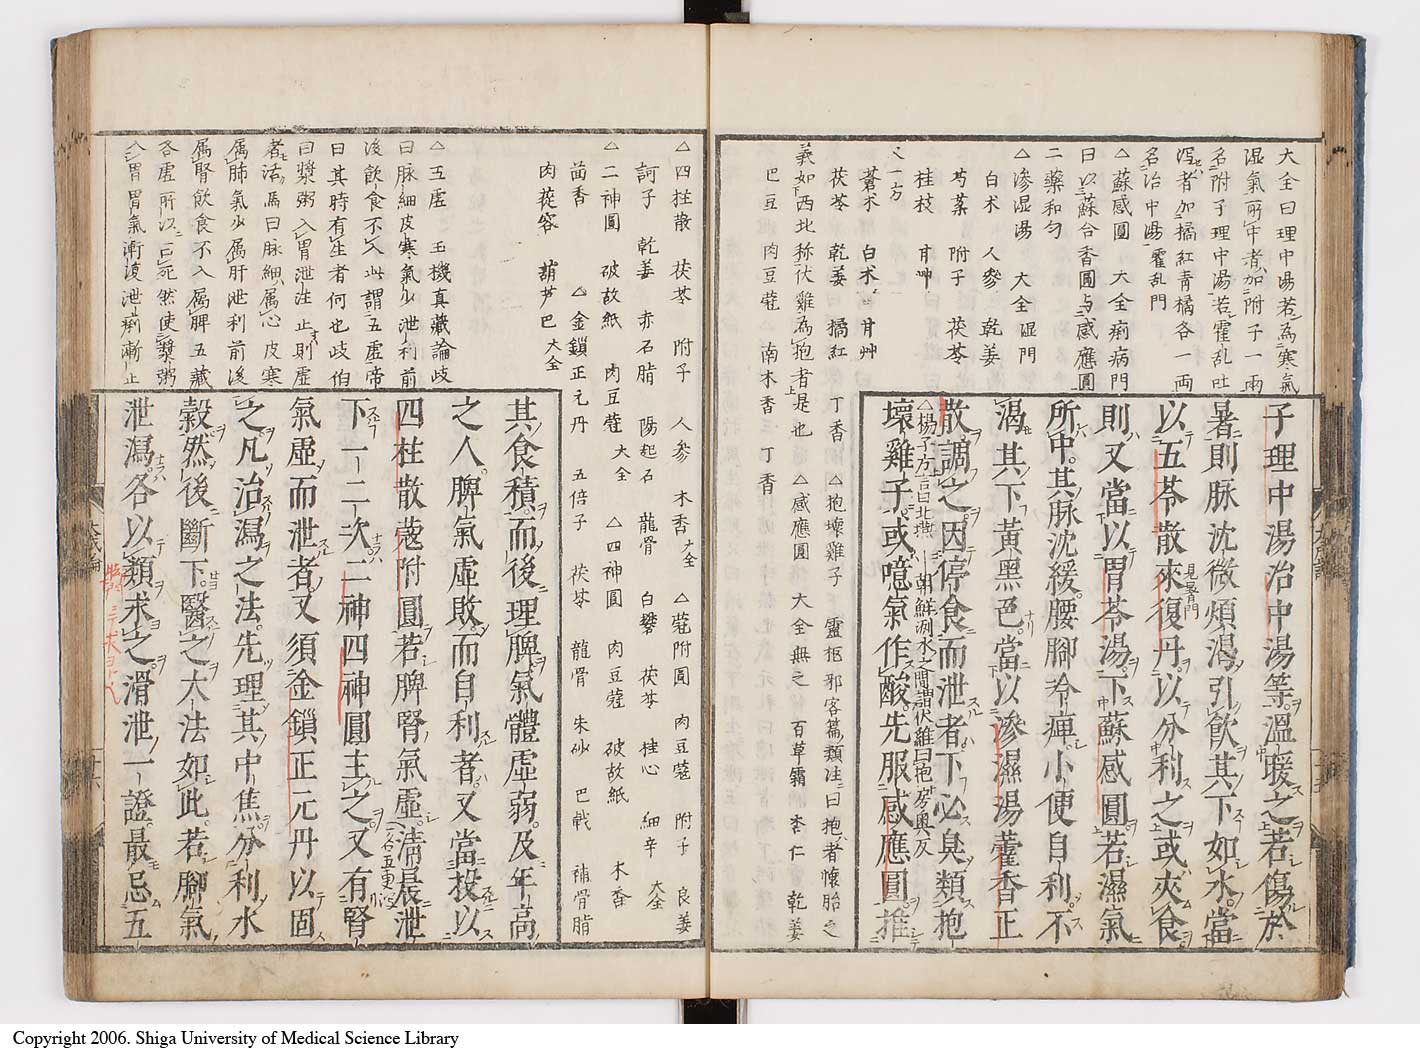 大全曰理中湯若爲寒氣
湿氣所中者加附子一兩
名附子理中湯若霍乱吐
瀉者加橘紅青橘各一両
名治中湯 霍乱門
△蘇感圓 大全痢病門
曰以蘇合香圓与感應圓
二藥和匀
△滲湿湯 大全湿門
白朮 人參 乾姜
芍藥 附子 茯苓
桂枝 甘艸
又一方
蒼朮 白朮 甘艸
茯苓 乾姜 橘紅 丁香
△抱壞雞子 靈枢邪客篇類注曰抱者懐胎之
義如西北称伏雞為抱者是也 △感應圓 大全無之 百草霜 杏仁 乾姜
巴豆 肉豆蔲 南木香 丁香
子理中湯治中湯等溫暖之若傷於
暑則脉沈微煩渴引飲其下如水當
以五苓散來復丹以分利之或夾食
見暑門
則又當以胃苓湯下蘇感圓若濕氣
所中其脉沈緩腰腳冷痺小便自利不
渴其下黃黑色當以滲濕湯藿香正
散調之因停食而泄者下必臭類抱
△揚子方言曰北燕朝鮮洌水之間謂伏雞曰抱房奧反
壞雞子或噫氣作酸先服感應圓推
△四柱散 茯苓 附子 人参 木香 大全 △蔲附圓 肉豆蔲 附子 良姜
訶子 乾姜 赤石脂 陽起石 龍骨 白礬 茯苓 桂心 細辛 大全
△二神圓 破故紙 肉豆蔲 大全 △四神圓 肉豆蔲 破故紙 木香
茴香 △金鎖正元丹 五倍子 茯苓 龍骨 朱砂 巴戟 補骨脂
肉蓯容 葫芦巴 大全
△五虚 玉機真藏論歧
曰脉細皮寒氣少泄利前
後飲食不入此謂五虚帝
曰其時有生者何也歧伯
曰漿粥入胃泄注止則虚
者活馬曰脉細属心皮寒
属肺氣少属肝泄利前後
属腎飲食不入属脾五藏
各虚所以曰死然使漿粥
入胃胃氣漸復泄痢漸止
其食積而後理脾氣體虛弱及年高
之人脾氣虛敗而自利者又當投以
四柱散蔲附圓若脾腎氣虛清晨泄
下一二次二神四神圓主之又有腎
氣虛而泄者又須金鎖正元丹以固
之凡治瀉之法先理其中焦分利水
穀然後斷下醫之大法如此若腳氣
泄瀉各以類求之滑泄一證最忌五